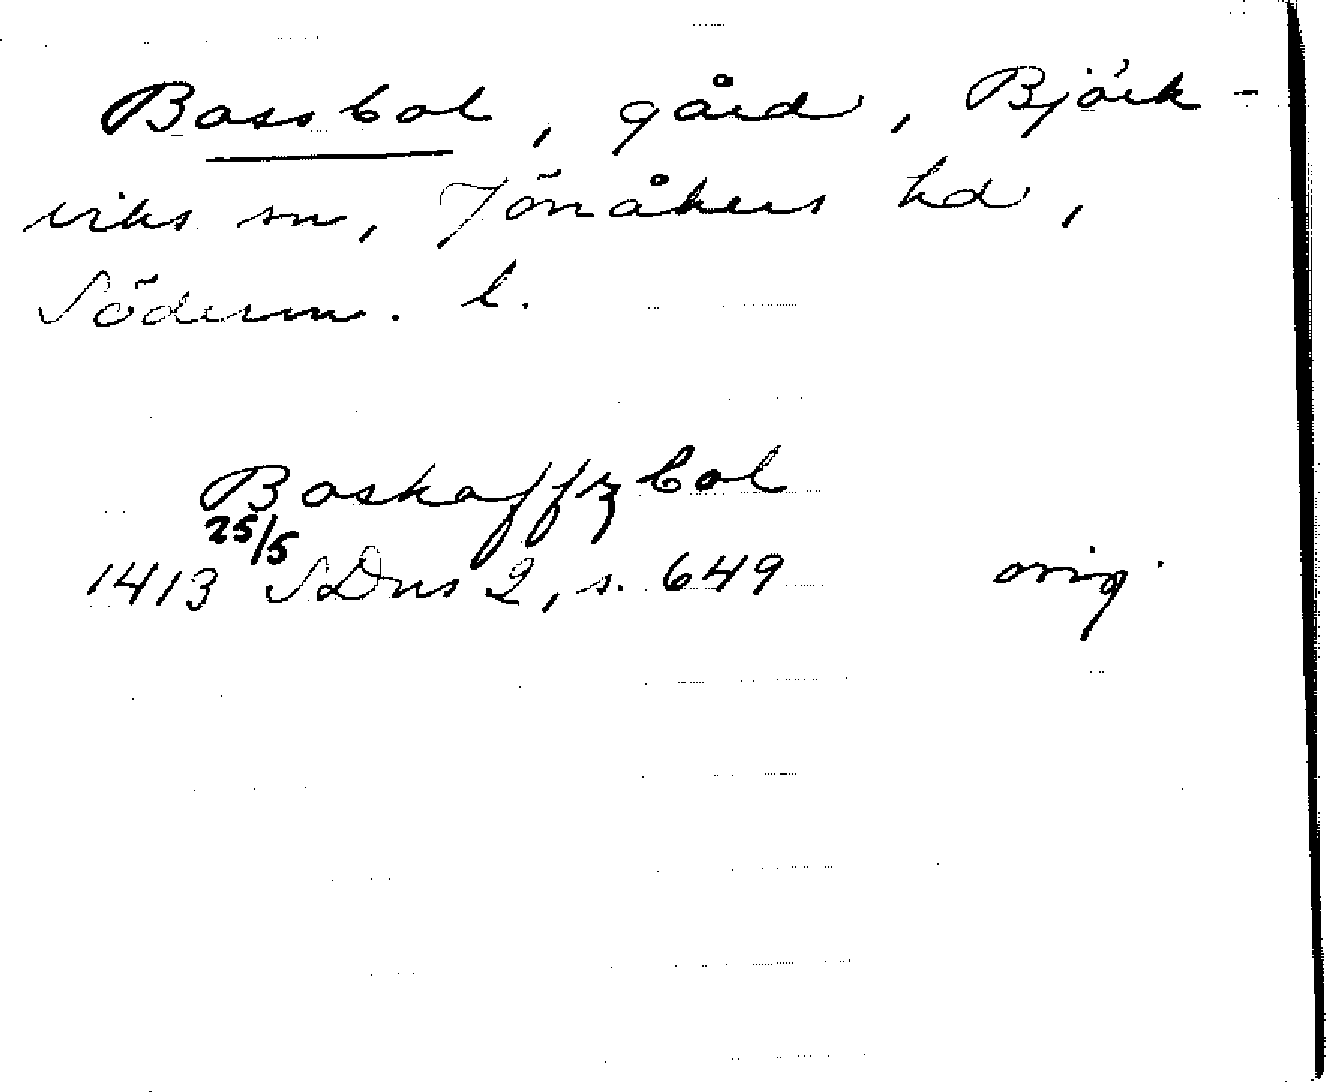 Bassbol, gård, Björk-
viks sn, Jönåkers hd,
Söderm. l.
Baskaffzbol
25/5
1413 SDns 2, s. 649 orig.